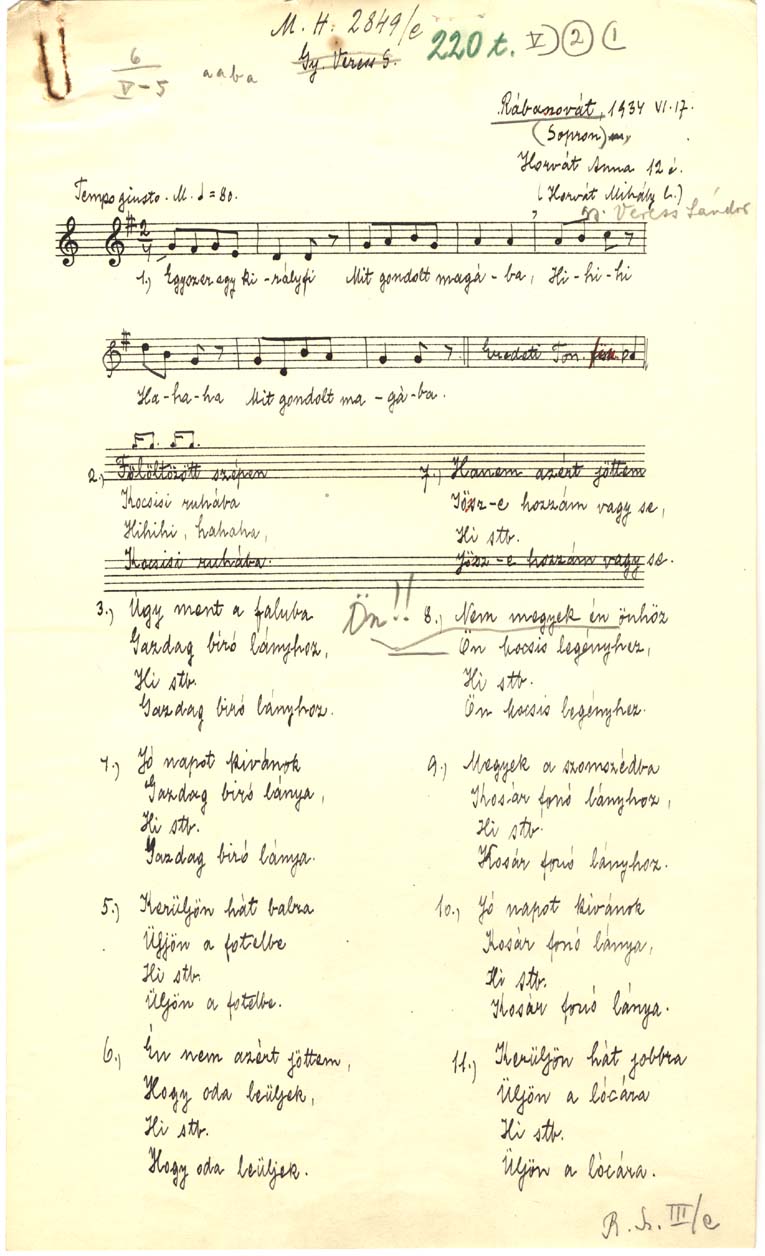 M. H. 2849/e
Gy. Veress S.
220 t. V) 2 (1
6
V-5
a a b a
Rábaszovát, 1934 VI. 17.
(Sopron) m,
Horvát Anna 12 é.
(Horvát Mihály l.)
gy. Veress Sándor
Tempo giusto. M. ♩ = 80.
1.) Egyszer egy ki-rályfi Mit gondolt magá-ba, Hi-hi-hi
Eredeti Ton.
Ha-ha-ha Mit gondolt ma-gá-ba.
2.) Fölöltözött szépen
Kocsisi ruhába
Hihihi, hahaha,
Kocsisi ruhába.
3.) Úgy ment a faluba
Gazdag biró lányhoz,
Hi stb.
Gazdag biró lányhoz.
4.) Jó napot kivánok
Gazdag biró lánya,
Hi stb.
Gazdag biró lánya.
5.) Kerüljön hát balra
Üljön a fotelbe
Hi stb.
Üljön a fotelbe.
6.) Én nem azért jöttem,
Hogy oda leüljek,
Hi stb.
Hogy oda leüljek.
7.) Hanem azért jöttem
Jösz-e hozzám vagy se,
Hi stb.
Jösz-e hozzám vagy se.
Ön!!
8.) Nem megyek én önhöz
Ön kocsis legényhez,
Hi stb.
Ön kocsis legényhez.
9.) Megyek a szomszédba
Kosár fonó lányhoz,
Hi stb.
Kosár fonó lányhoz.
10.) Jó napot kivánok
Kosár fonó lánya,
Hi stb.
Kosár fonó lánya.
11.) Kerüljön hát jobbra
Üljön a lócára
Hi stb.
Üljön a lócára.
R. h. III/e